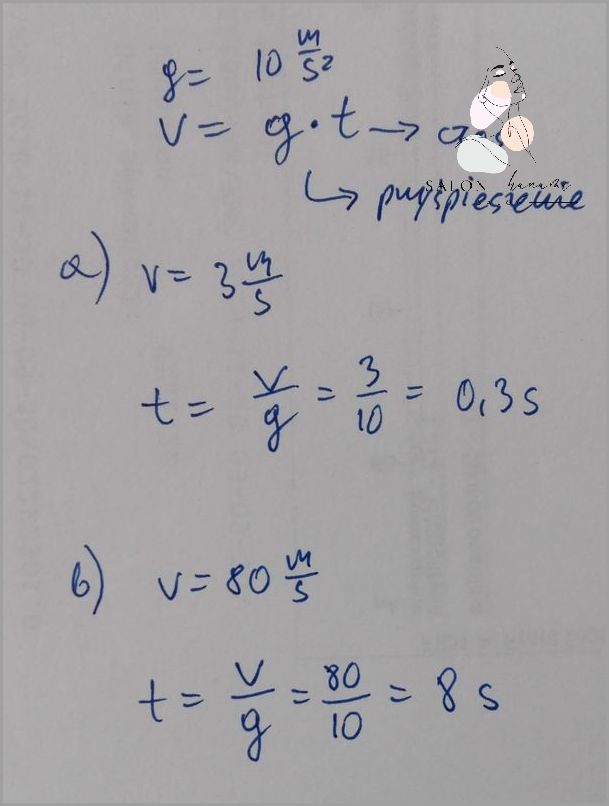 g = 10 m/s²
v = g · t →
↳ przyspieszenie
SALON hanami
a) v = 3 m/s
t = v/g = 3/10 = 0,3 s
b) v = 80 m/s
t = v/g = 80/10 = 8 s